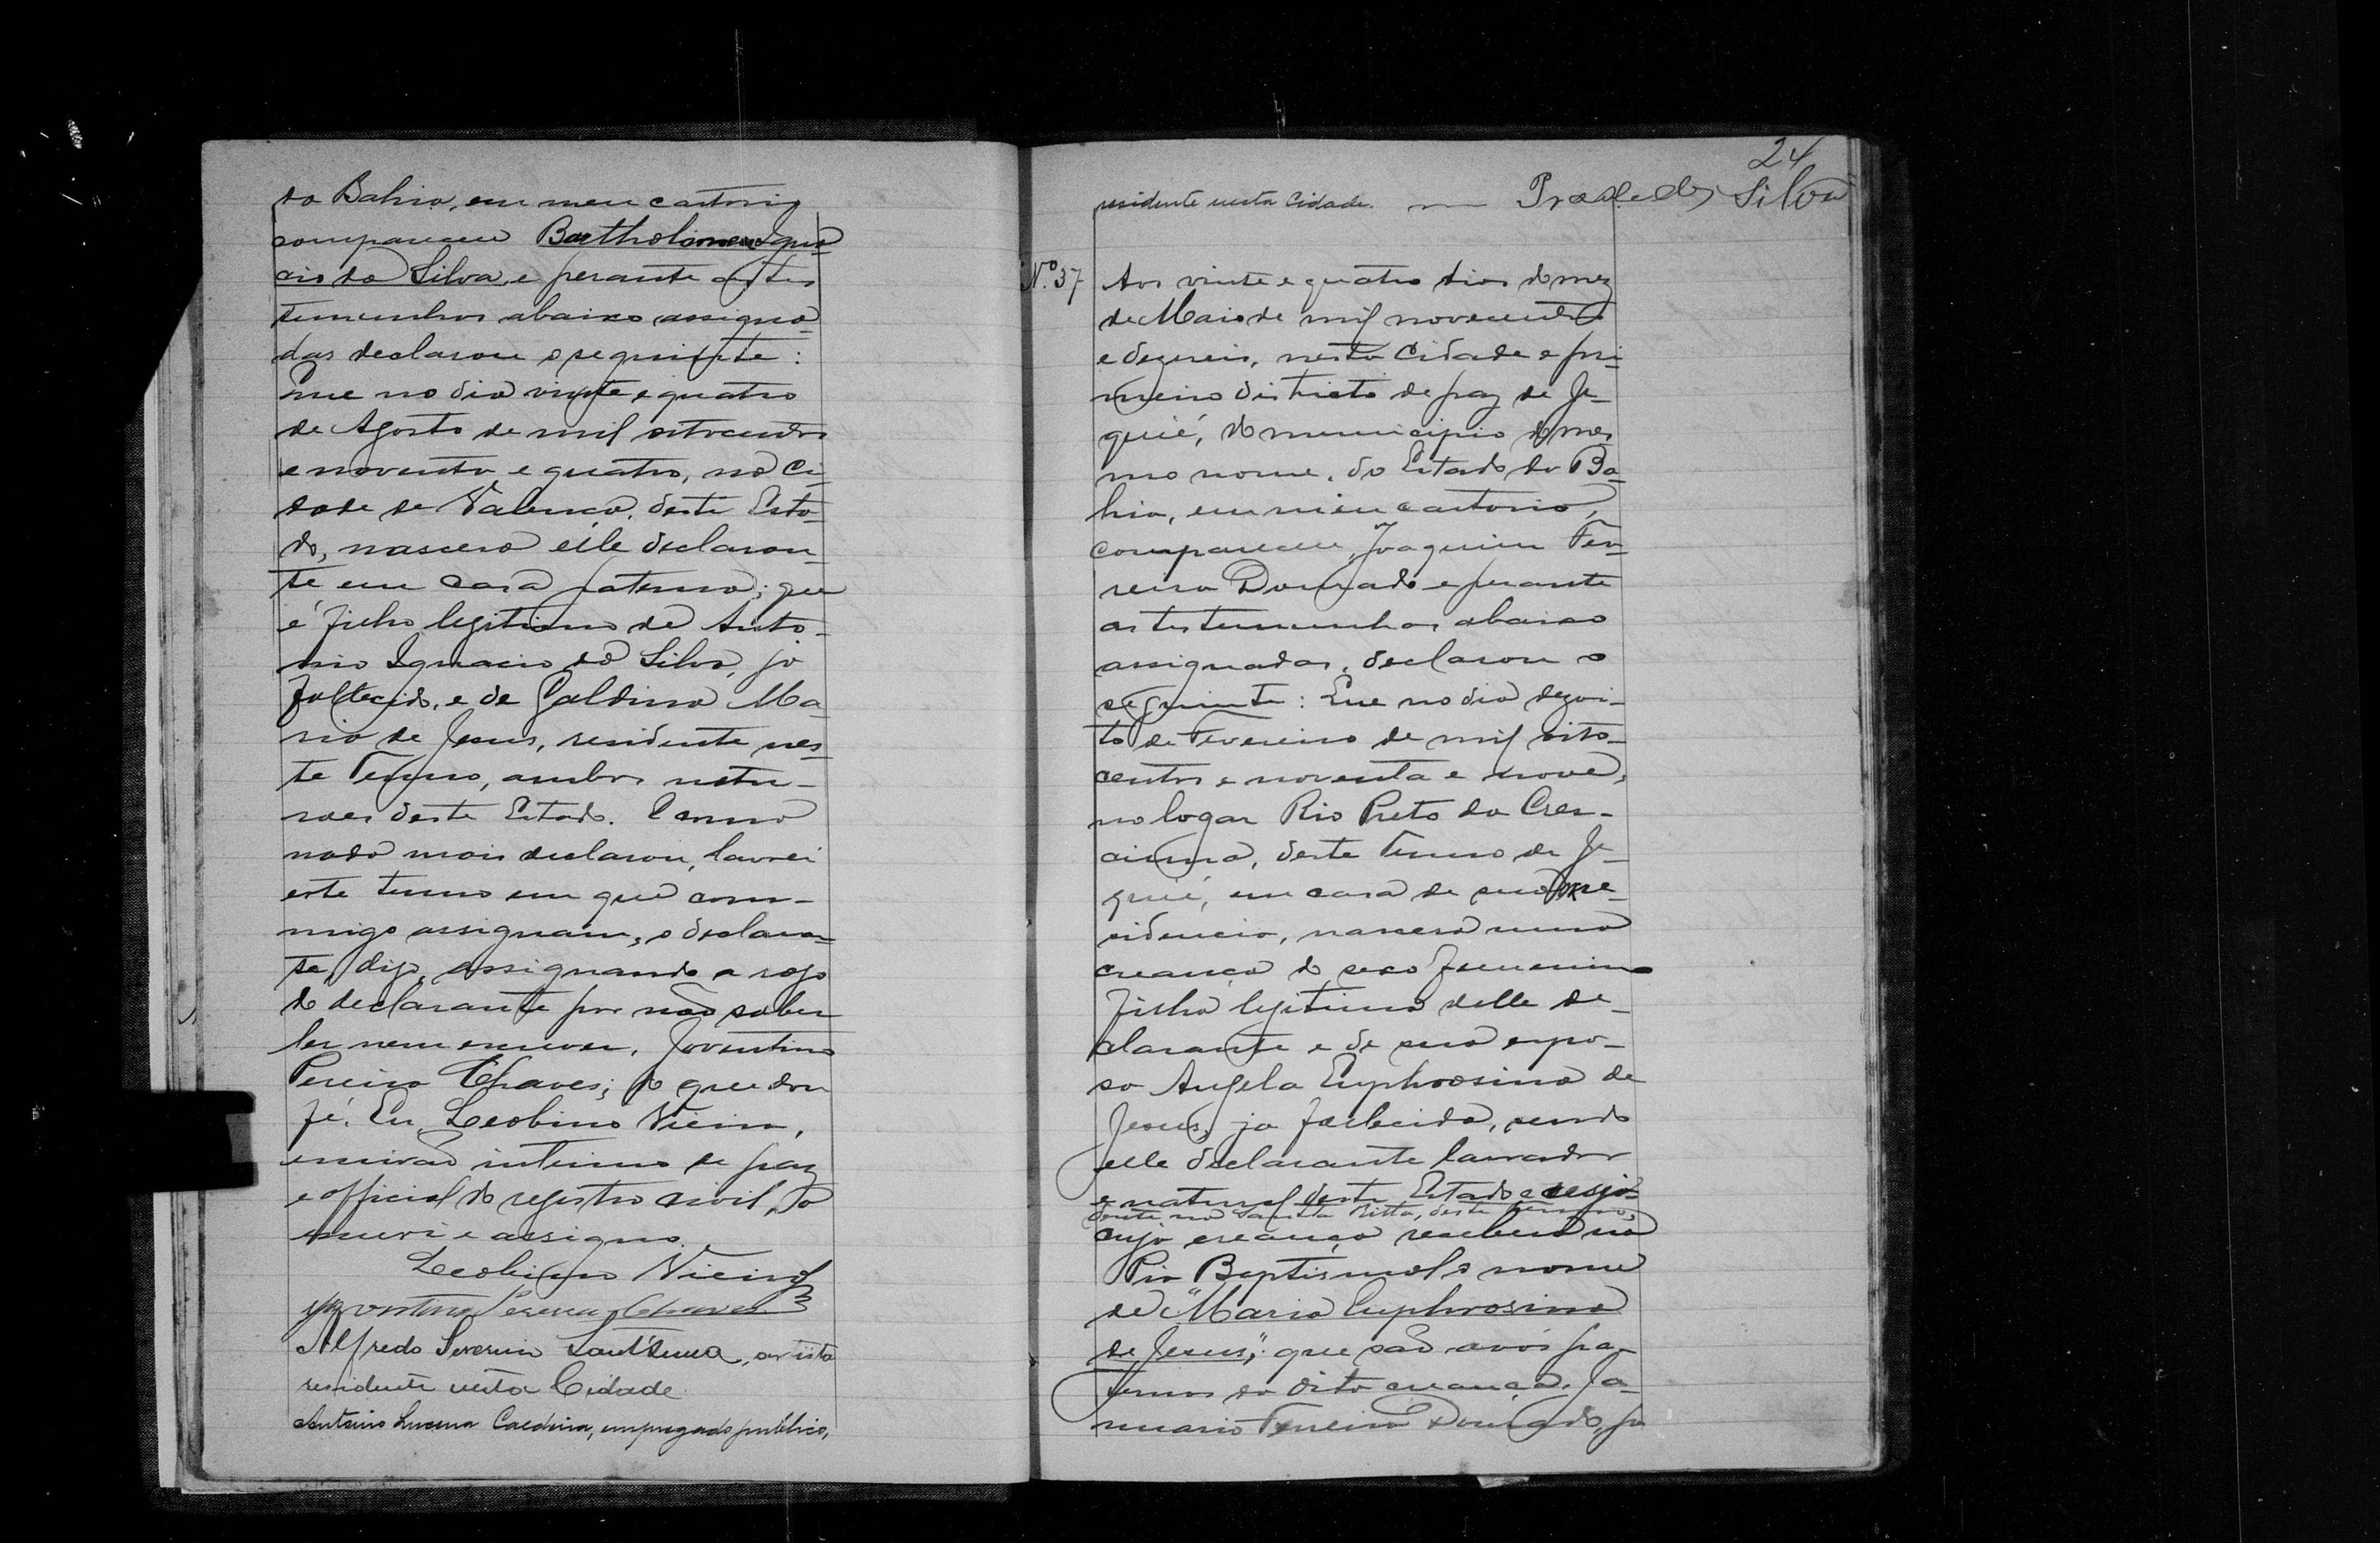 da Bahia, em meu cartorio
compareceu Bartholomeu Igna-
cio da Silva, e perante as tes
temunhas abaixo assigna-
das declarou o seguinte:
Que no dia vinte e quatro
de Agosto de mil oitocentos
e noventa e quatro, na Ci-
dade de Valença, deste Esta-
do, nascera elle declaran-
te em casa paterna; que
é filho legitimo de Anto-
nio Ignacio da Silva, já
fallecido, e de Galdina Ma-
ria de Jesus, residente nes-
te Termo, ambos natu-
raes deste Estado. E como
nada mais declarou, lavrei
este termo em que com-
migo assignam, o declaran-
te, digo, assignando a rogo
do declarante por não saber
ler nem escrever, Joventino
Pereira Chaves; do que dou
fé. Eu, Leobino Vieira,
escrivão interino de paz
e official do registro civil, o
escrevi e assigno.
Leobino Vieira
Joventino Pereira Chaves
Alfredo Severino Sant'Anna, artista
residente nesta Cidade
Antonio Lucena Caldeira, empregado publico,
24
residente nesta Cidade. Praxedes Silva
Nº. 37 Aos vinte e quatro dias do mez
de Maio de mil novecentos
e dezeseis, nesta Cidade e pri-
meiro districto de paz de Je-
quié, do municipio do mes
mo nome, do Estado da Ba-
hia, em meu cartorio,
compareceu, Joaquim Fer-
reira Dourado e perante
as testemunhas abaixo
assignadas, declarou o
seguinte: Que no dia dezoi-
to de Fevereiro de mil oito-
centos e noventa e nove,
no logar Rio Preto da Cres-
ciuma, deste Termo de Je-
quié, em casa de sua re-
sidencia, nascera uma
creança do sexo femenino
filha legitima delle de-
clarante e de sua espo-
sa Angela Euphrosina de
Jesus, já fallecida, sendo
elle declarante lavrador
e natural deste Estado e resi-
dente na Santa Ritta, deste Termo,
cuja creança recebera na
Pia Baptismal o nome
de "Maria Euphrosina
de Jesus;" que são avós pa-
ternos da dita creança. Ja-
nuario Ferreira Dourado, já